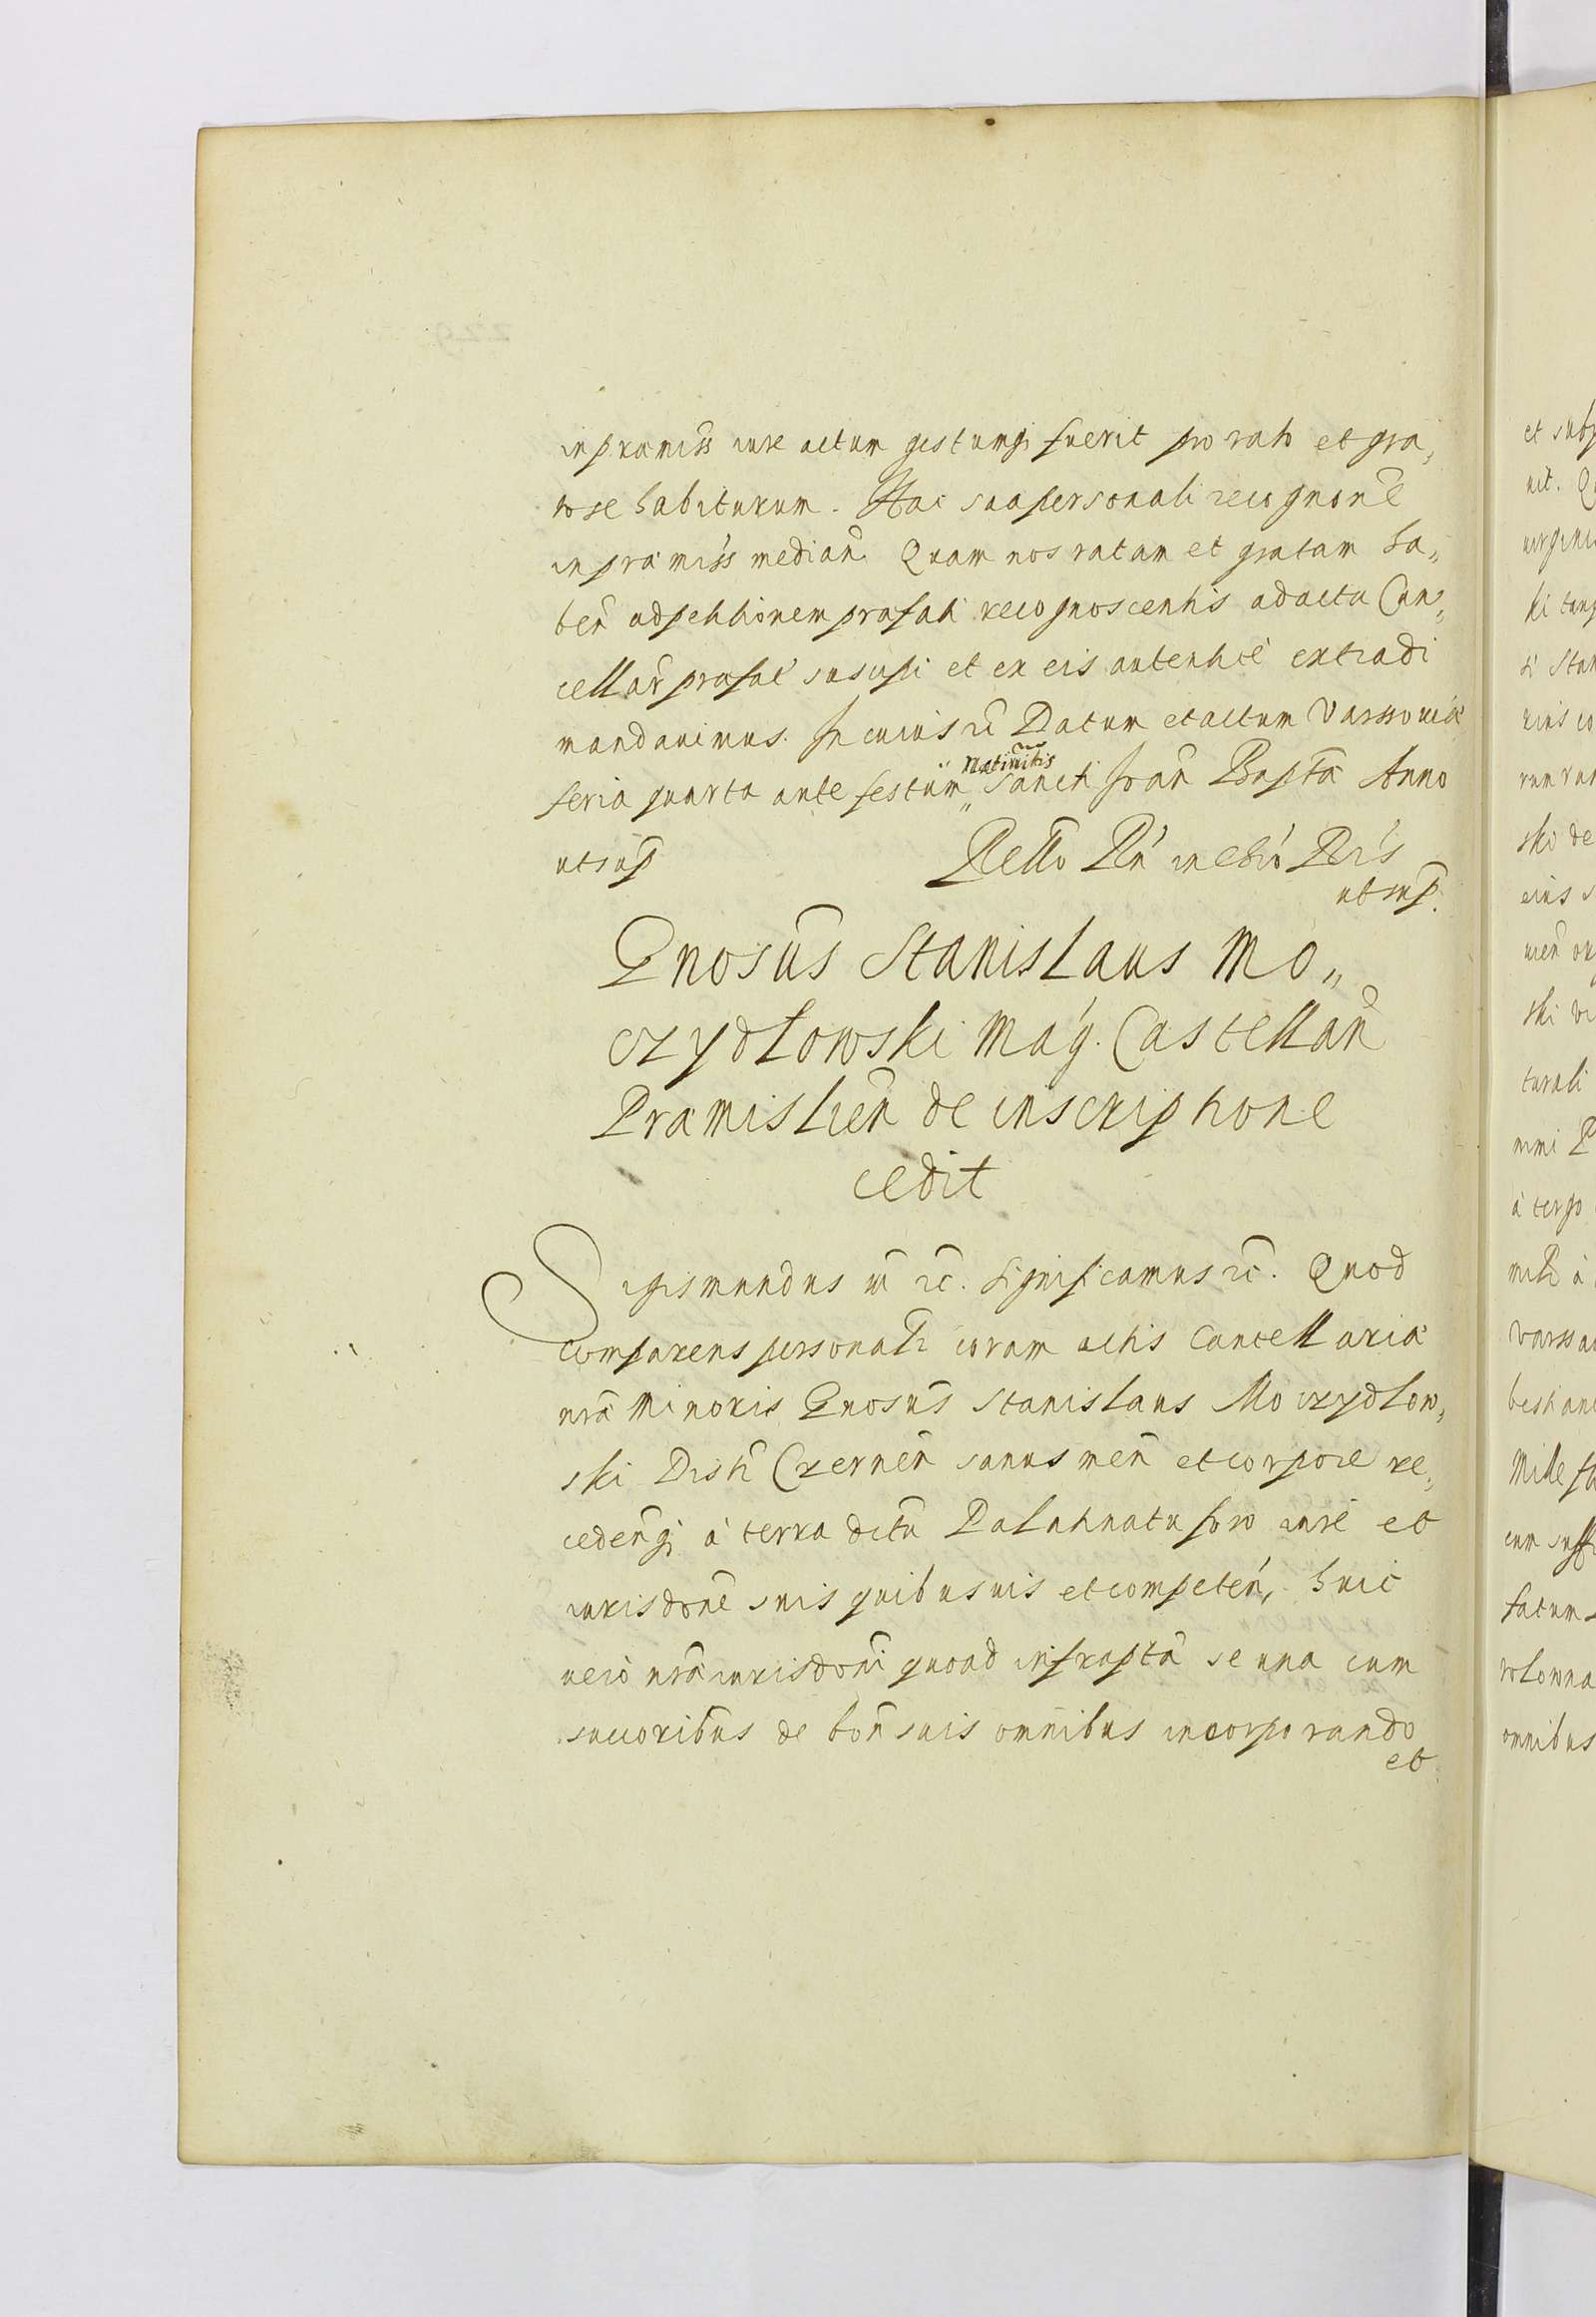 in præmiss iure actum gestumq; fuerit pro rato et gra„
to se habiturum. Hac sua personali recognoñe
in præmiss median. Quam nos ratam et gratam ha„
beñ ad petitionem præfati recognoscentis ad acta Can„
cellaṙ præfaẗ suscipi et ex eis autentice extradi
mandavimus. In cuius rē Datum et actum Varssoviæ
feria quarta ante festum Nativitis Sancti Joañ Bapta Anno
ut sup
ut sup.
Gnosus Stanislaus Mo„
czydłowski Mag. Castellañ
Præmislieñ de inscriptione
cedit
Sigismundus III rc. Significamus rc. Quod
comparens personalr coram actis Cancellariæ
nræ Minoris Gnosus Stanislaus Moczydłow„
ski Districtus Czerneñ sanus meñ et corpore re„
cedenq; à terra dictu Palatinatu foro iure et
iurisdoñe suis quibusvis et competeñ, huic
vero nræ iurisdoñi quoad infrapta se una cum
succoribus de boñ suis omnibus incorporando
et